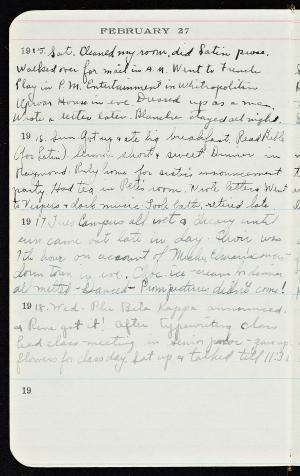 FEBRUARY 27
1915. Sat. Cleaned my room, did Latin prose.
Walked over for mail in A.M. Went to French
Play in P.M. Entertainment in
House in eve Dressed up as a man.
Wrote a letter later. Blanche stayed all night.
1916. Sun. Got up & ate big breakfast. Read Bible
short & sweet. Dinner in
Raymond. announcement
party. Had tea in Pat's room. Wrote letters. Went
to Vespers & dark music. Took bath, retired late
1917 Tues Campus all wet & until
sun came out late in day. Choir was
7th hour on account of
down town in eve. Choc. ice-cream for dinner
all melted - Danced - Prom pictures didn't come!
1918. Wed. Phi Beta Kappa announced.
& Rene got it! After typewriting class
had class-meeting in Senior
flowers for class day. Sat up & talked till 11:30
19